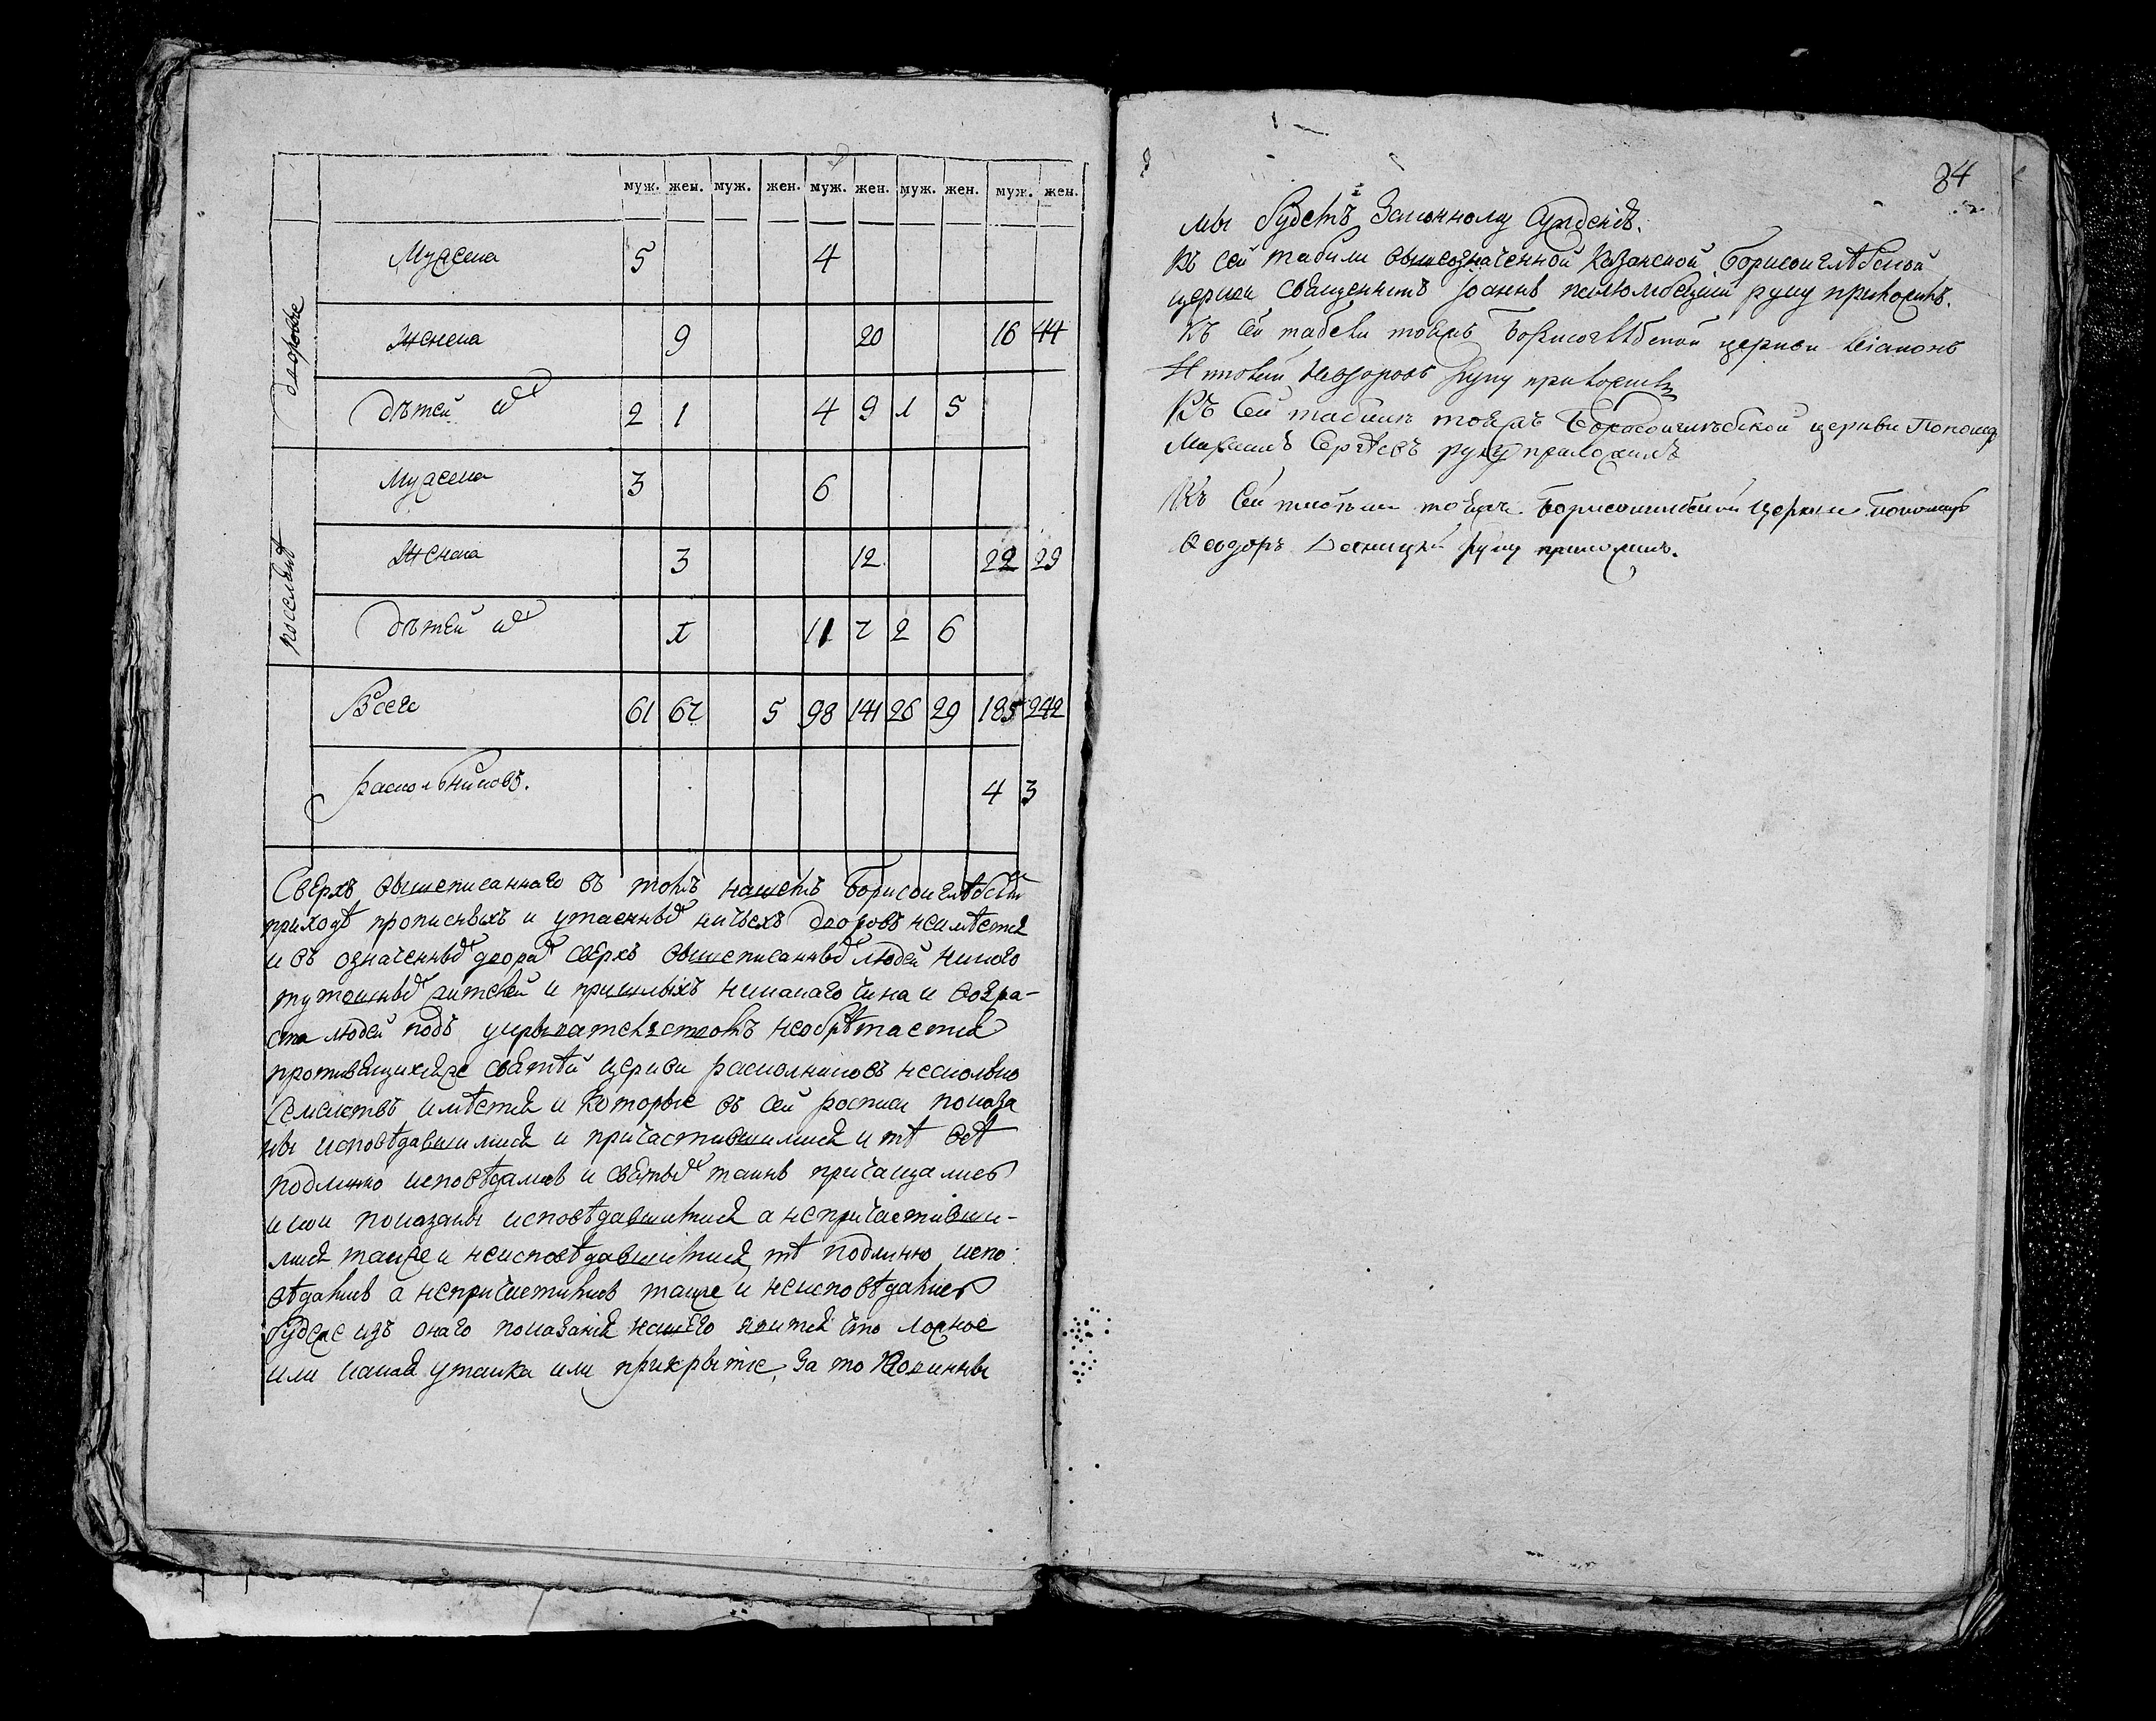 муж. жен. муж. жен. муж. жен. муж. жен. муж. жен.
дворовые
Мужеска 5 4
Женска 9 20 16 44
дѣтей ихъ 2 1 4 9 1 5
посадскіе
Мужеска 3 6
Женска 3 12 22 29
дѣтей ихъ 1 11 7 2 6
Всего 61 67 5 98 141 26 29 185 242
раскольниковъ. 4 3
Сверхъ вышеписаннаго въ томъ нашемъ Борисоглѣбскомъ
приходѣ прописныхъ и утаенныхъ ничьихъ дворовъ неимѣется
и въ означенныхъ дворахъ сверхъ вышеписанныхъ людей никого
тутошныхъ жителей и пришлыхъ никакаго чина и возра-
ста людей подъ укрывательствомъ необрѣтается
противящихсяже святѣй церкви раскольниковъ несколько
семействъ имѣется и которые въ сей росписи показа
ны исповѣдавшимися и причастившимися и тѣ всѣ
подлинно исповѣдались и святыхъ таинъ причащались
и кои показаны исповѣдавшимися а непричастивши-
мися также и неисповѣдавшимися тѣ подлинно испо
вѣдались а непричастились также и неисповѣдались
будеже изъ онаго показанія нашего явится что ложное
или какая утайка или прикрытіе, за то повинны
84
мы будемъ законному сужденію.
Къ сей табели вышеозначенной Казанской Борисоглѣбской
церкви священникъ Іоаннъ руку приложилъ.
Къ сей табели тояжъ Борисоглѣбской церкви діаконъ
руку приложилъ
Къ сей табели тояжъ Борисоглѣбской церкви Пономарь
Михаилъ Сергѣевъ руку приложилъ
Къ сей табели тояжъ Борисоглѣбской церкви пономарь
Ѳеодоръ руку приложилъ.